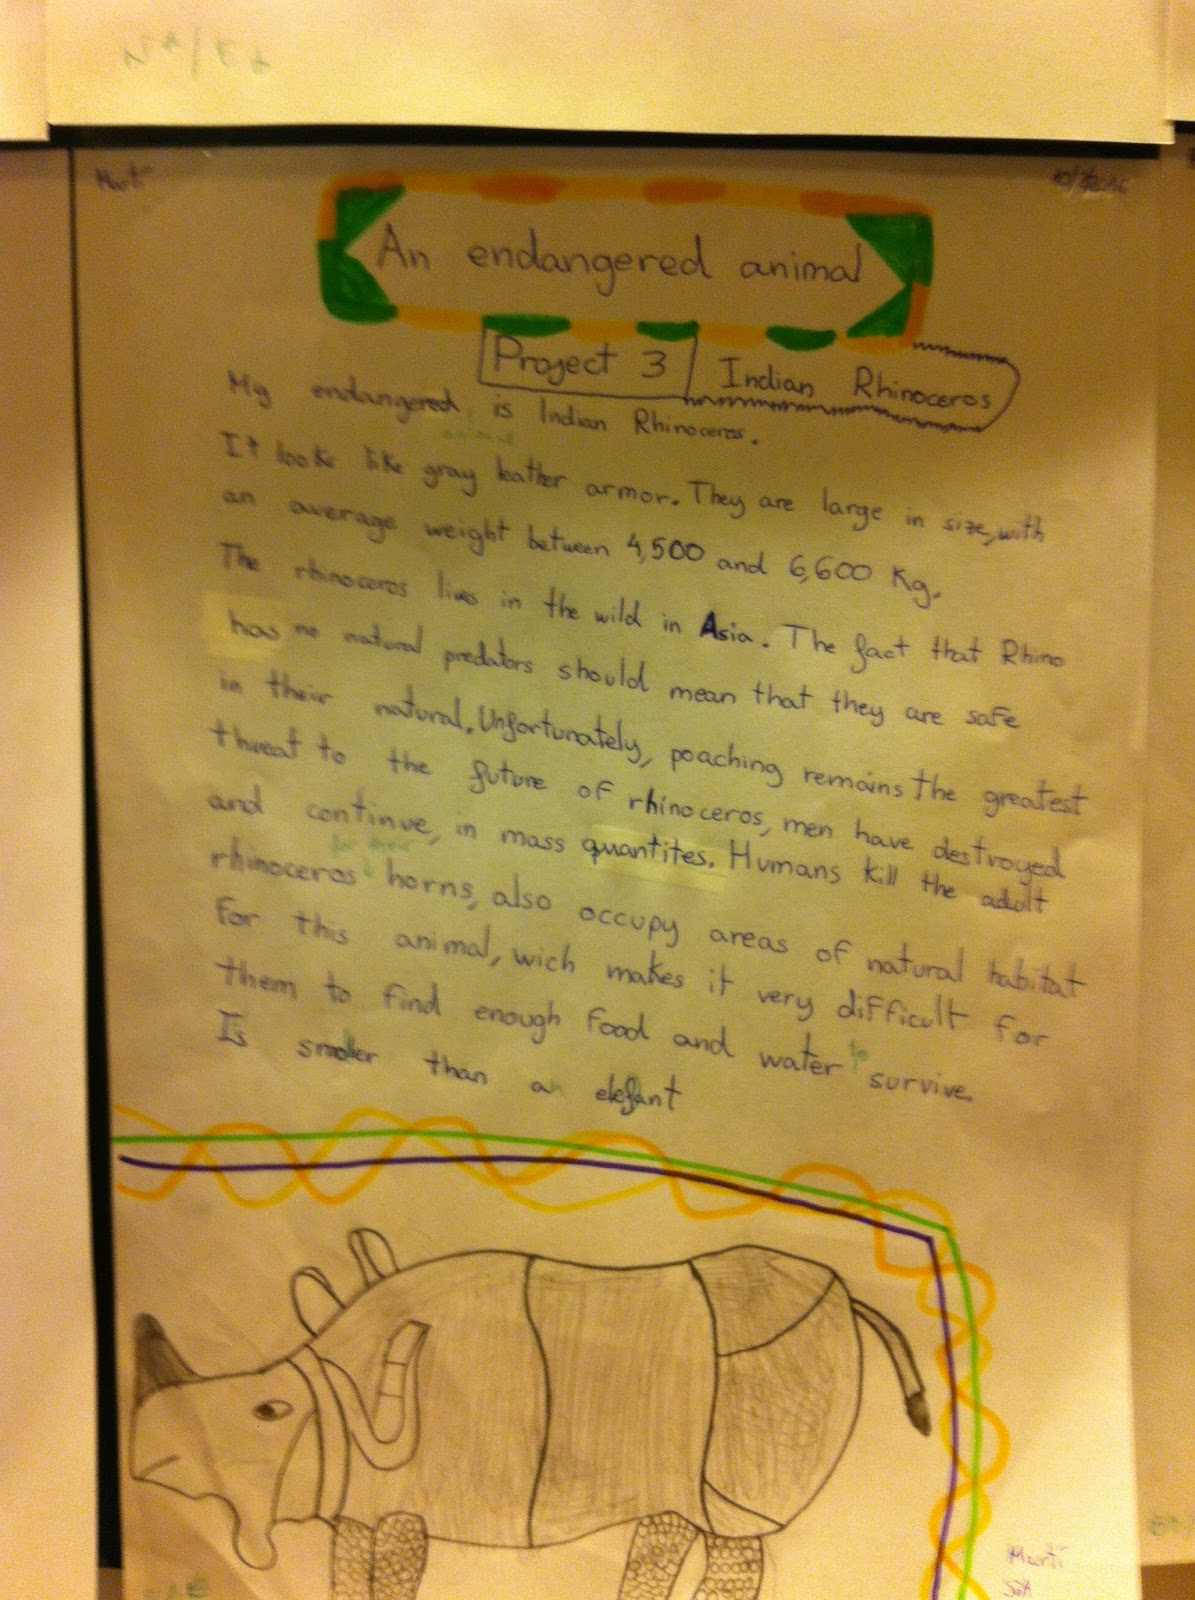 Martí
An endangered animal
Project 3 Indian Rhinoceros
My endangered is Indian Rhinoceros.
animal
It looks like gray leather armor. They are large in size, with
an average weight between 4,500 and 6,600 Kg.
The rhinoceros lives in the wild in Asia. The fact that Rhino
has no natural predators should mean that they are safe
in their natural. Unfortunately, poaching remains the greatest
threat to the future of rhinoceros, men have destroyed
and continue, in mass quantites. Humans kill the adult
for their
rhinoceros horns, also occupy areas of natural habitat
for this animal, wich makes it very difficult for
them to find enough food and water to survive.
Is smaller than an elefant
Martí